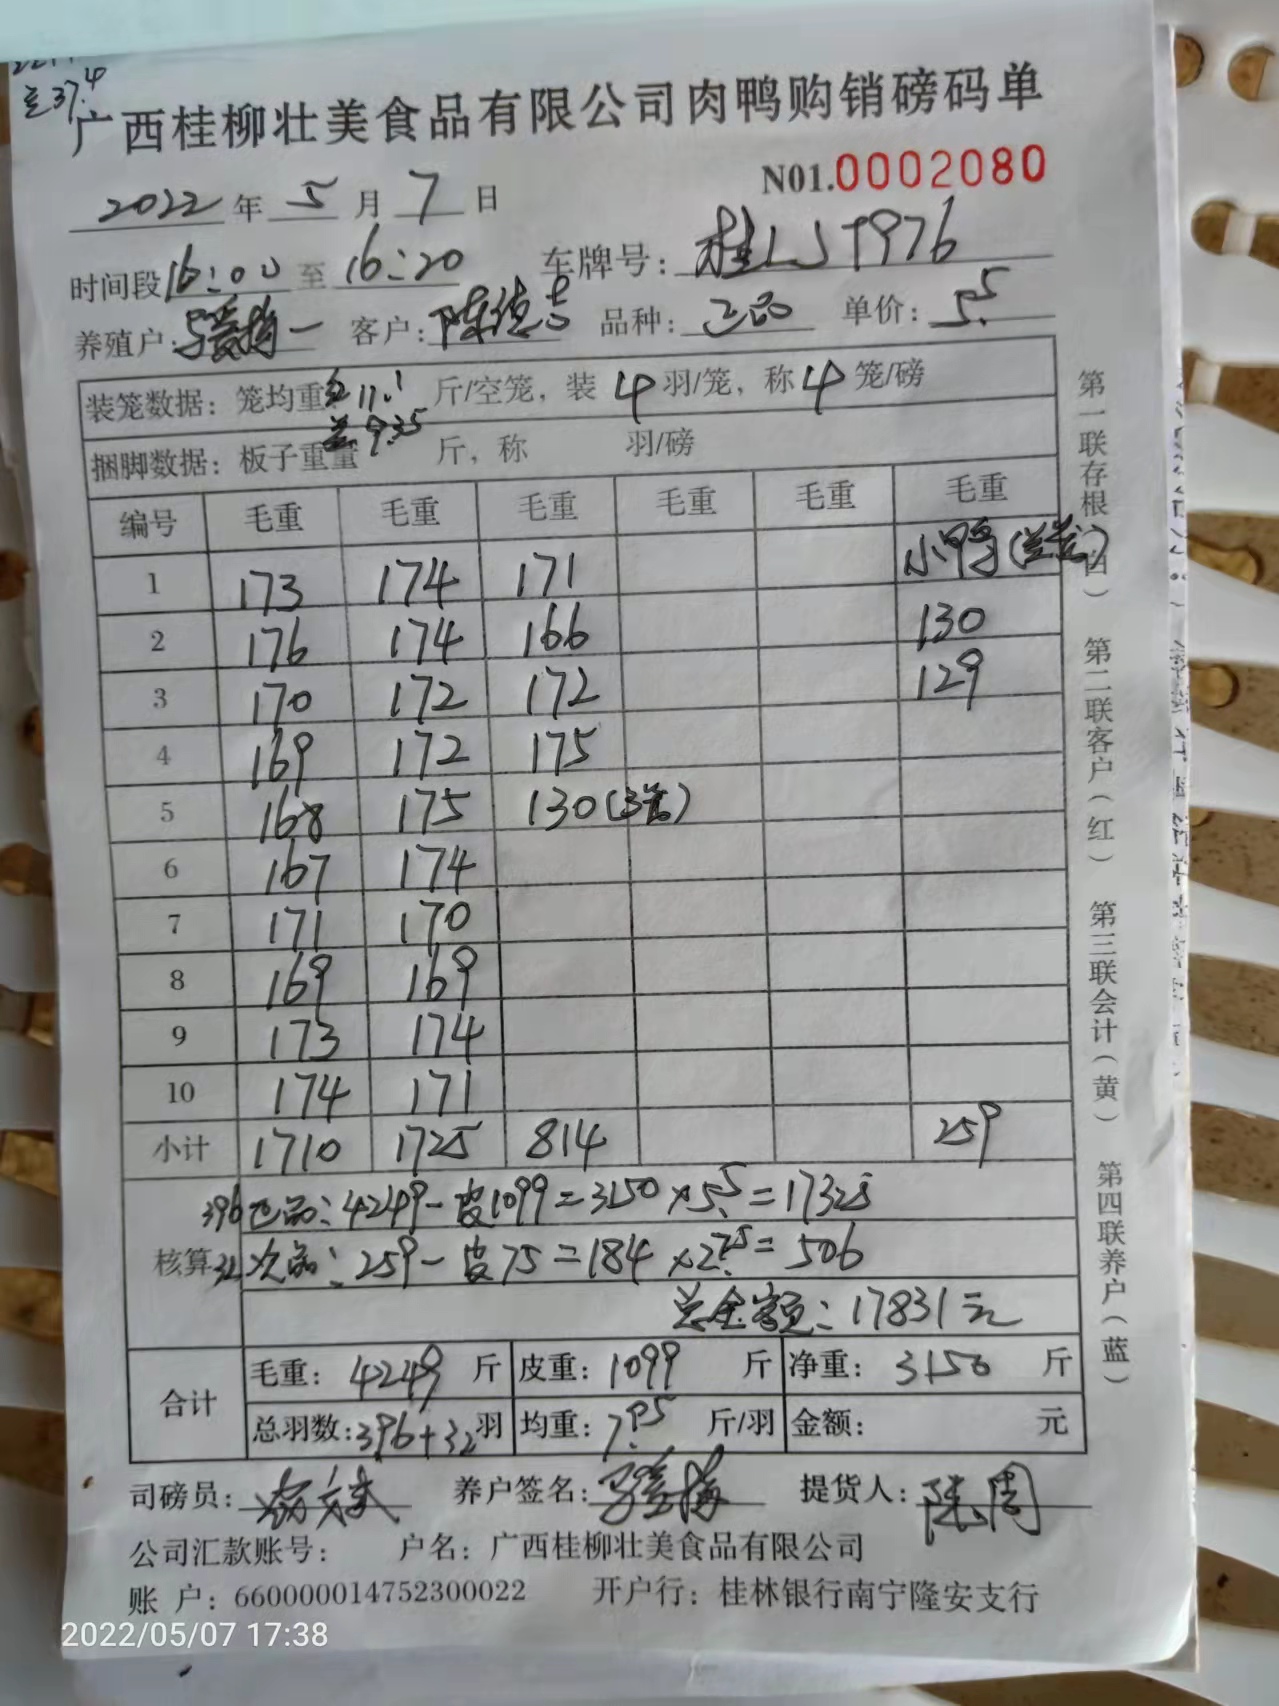 红37.4
广西桂柳壮美食品有限公司肉鸭购销磅码单
N01.0002080
2022年5月7日
时间段16:00至16:20 车牌号:桂LJT976
养殖户: 客户:陈德吉 品种:正品 单价:5.5
装笼数据:笼均重红11.1斤/空笼,装4羽/笼,称4笼/磅
兰9.35
捆脚数据:板子重量 斤,称 羽/磅
编号 毛重 毛重 毛重 毛重 毛重 毛重
1 173 174 171 小鸭(兰笼)
2 176 174 166 130
3 170 172 172 129
4 169 172 175
5 168 175 130(3笼)
6 167 174
7 171 170
8 169 169
9 173 174
10 174 171
小计 1710 1725 814 259
核算
396正品:4249-皮1099=3150×5.5=17325
32次品:259-皮75=184×2.75=506
总金额:17831元
合计
毛重:4249斤 皮重:1099斤 净重:3150斤
总羽数:396+32羽 均重:7.95斤/羽 金额: 元
司磅员: 养户签名: 提货人:陈周
公司汇款账号: 户名:广西桂柳壮美食品有限公司
账 户:660000014752300022 开户行:桂林银行南宁隆安支行
第一联存根(白) 第二联客户(红) 第三联会计(黄) 第四联养户(蓝)
2022/05/07 17:38